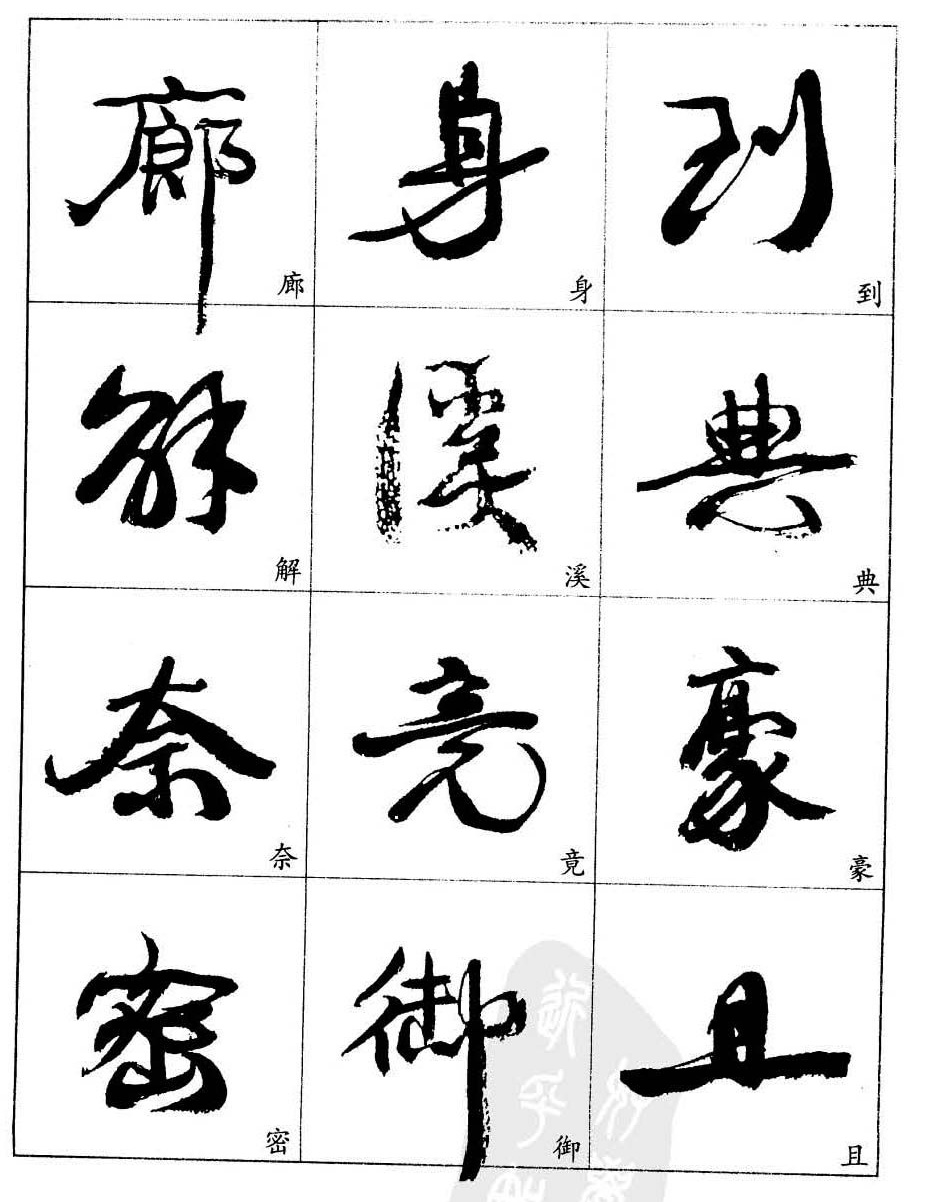 廊 身 到
廊 身 到
解 溪 典
解 溪 典
奈 竟 豪
奈 竟 豪
密 御 且
密 御 且